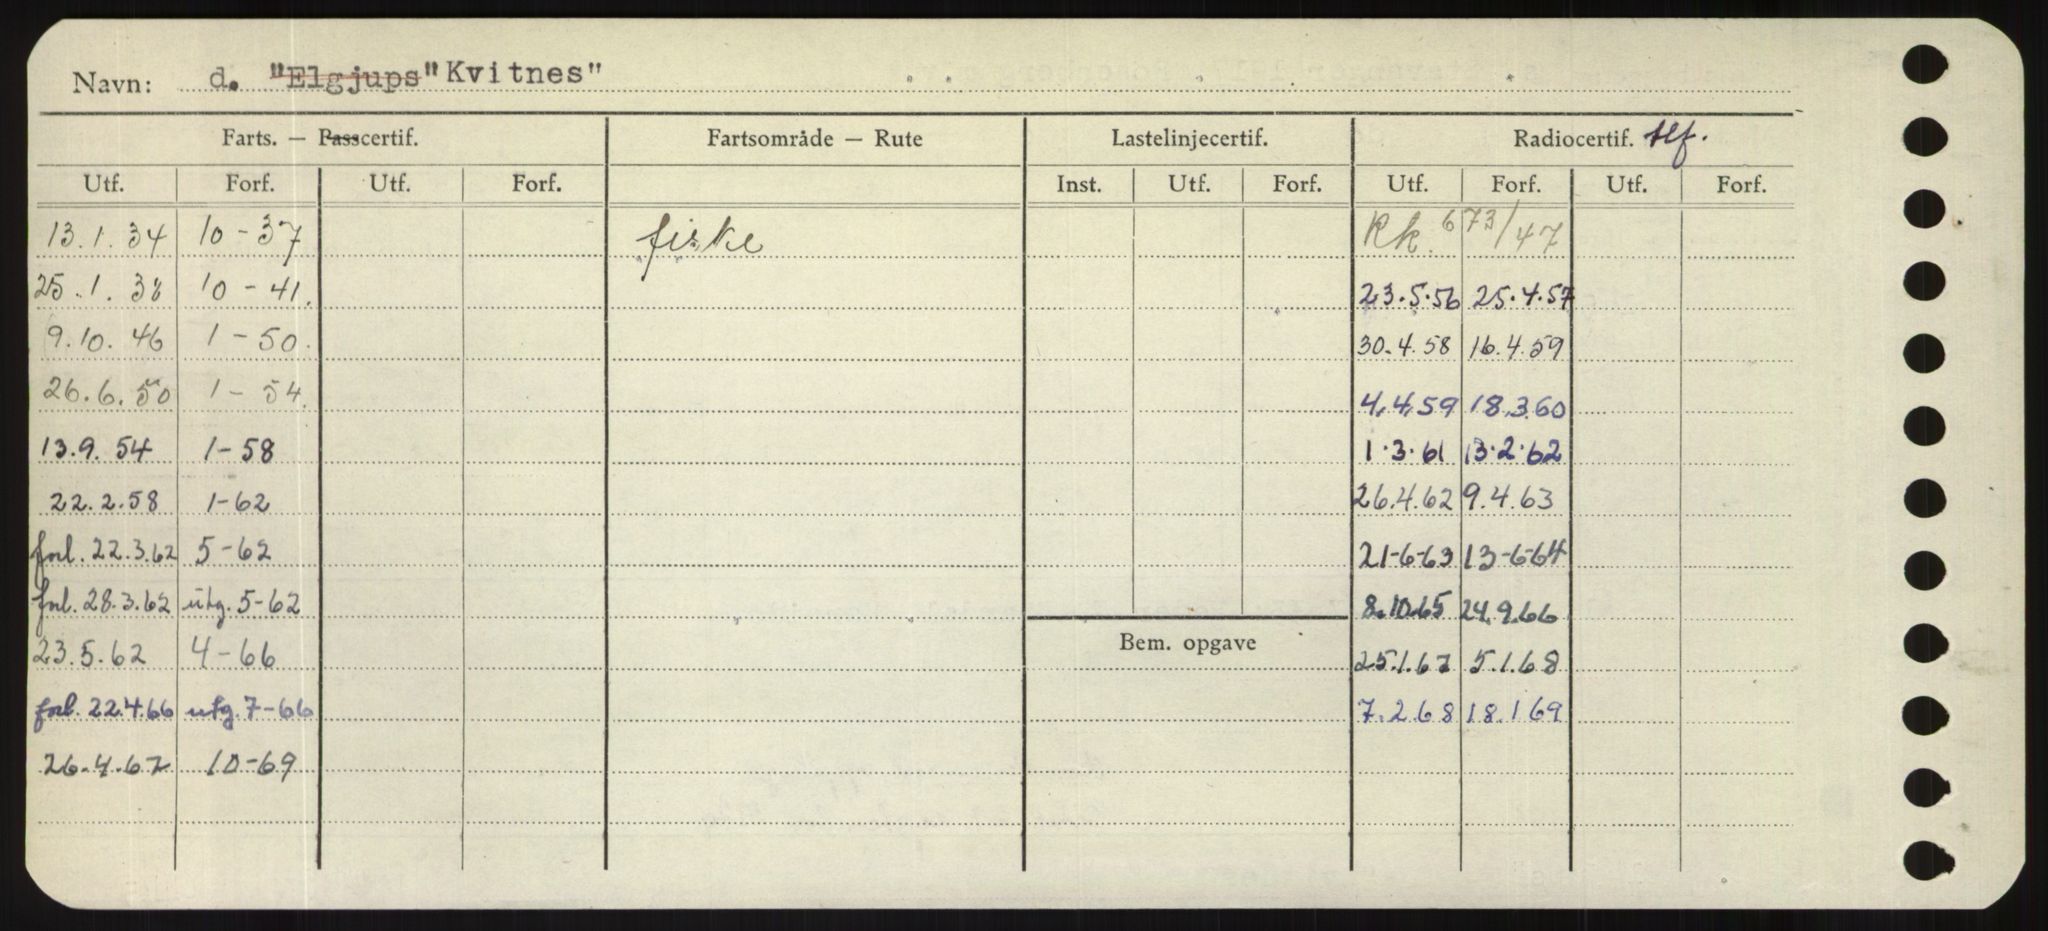 Navn: d. "Elgjups" "Kvitnes"
Farts. — Passcertif. Fartsområde — Rute Lastelinjecertif. Radiocertif. tlf.
Utf. Forf. Utf. Forf. Inst. Utf. Forf. Utf. Forf. Utf. Forf.
13.1.34 10-37 fiske Rk. 673/47
25.1.38 10-41. 23.5.56 25.4.57
9.10.46 1-50. 30.4.58 16.4.59
26.6.50 1-54. 4.4.59 18.3.60
13.9.54 1-58 1.3.61 13.2.62
22.2.58 1-62 26.4.62 9.4.63
forl. 22.3.62 5-62 21-6-63 13-6-64
forl. 28.3.62 utg. 5-62 8.10.65 24.9.66
23.5.62 4-66 Bem. opgave 25.1.67 5.1.68
forl. 22.4.66 utg. 7-66 7.2.68 18.1.69
26.4.67 10-69